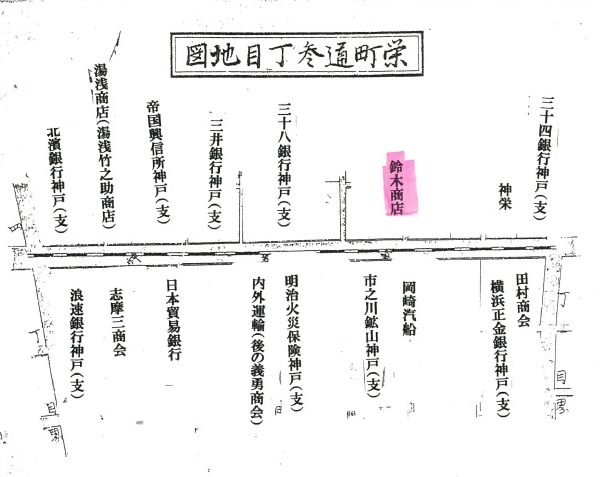 栄町通参丁目地図
三十四銀行神戸(支)
神栄
鈴木商店
三十八銀行神戸(支)
三井銀行神戸(支)
帝国興信所神戸(支)
湯浅商店(湯浅竹之助商店)
北濱銀行神戸(支)
田村商会
横浜正金銀行神戸(支)
岡崎汽船
市之川鉱山神戸(支)
明治火災保険神戸(支)
内外運輸(後の義勇商会)
日本貿易銀行
志摩三商会
浪速銀行神戸(支)
丁
目
丁
目